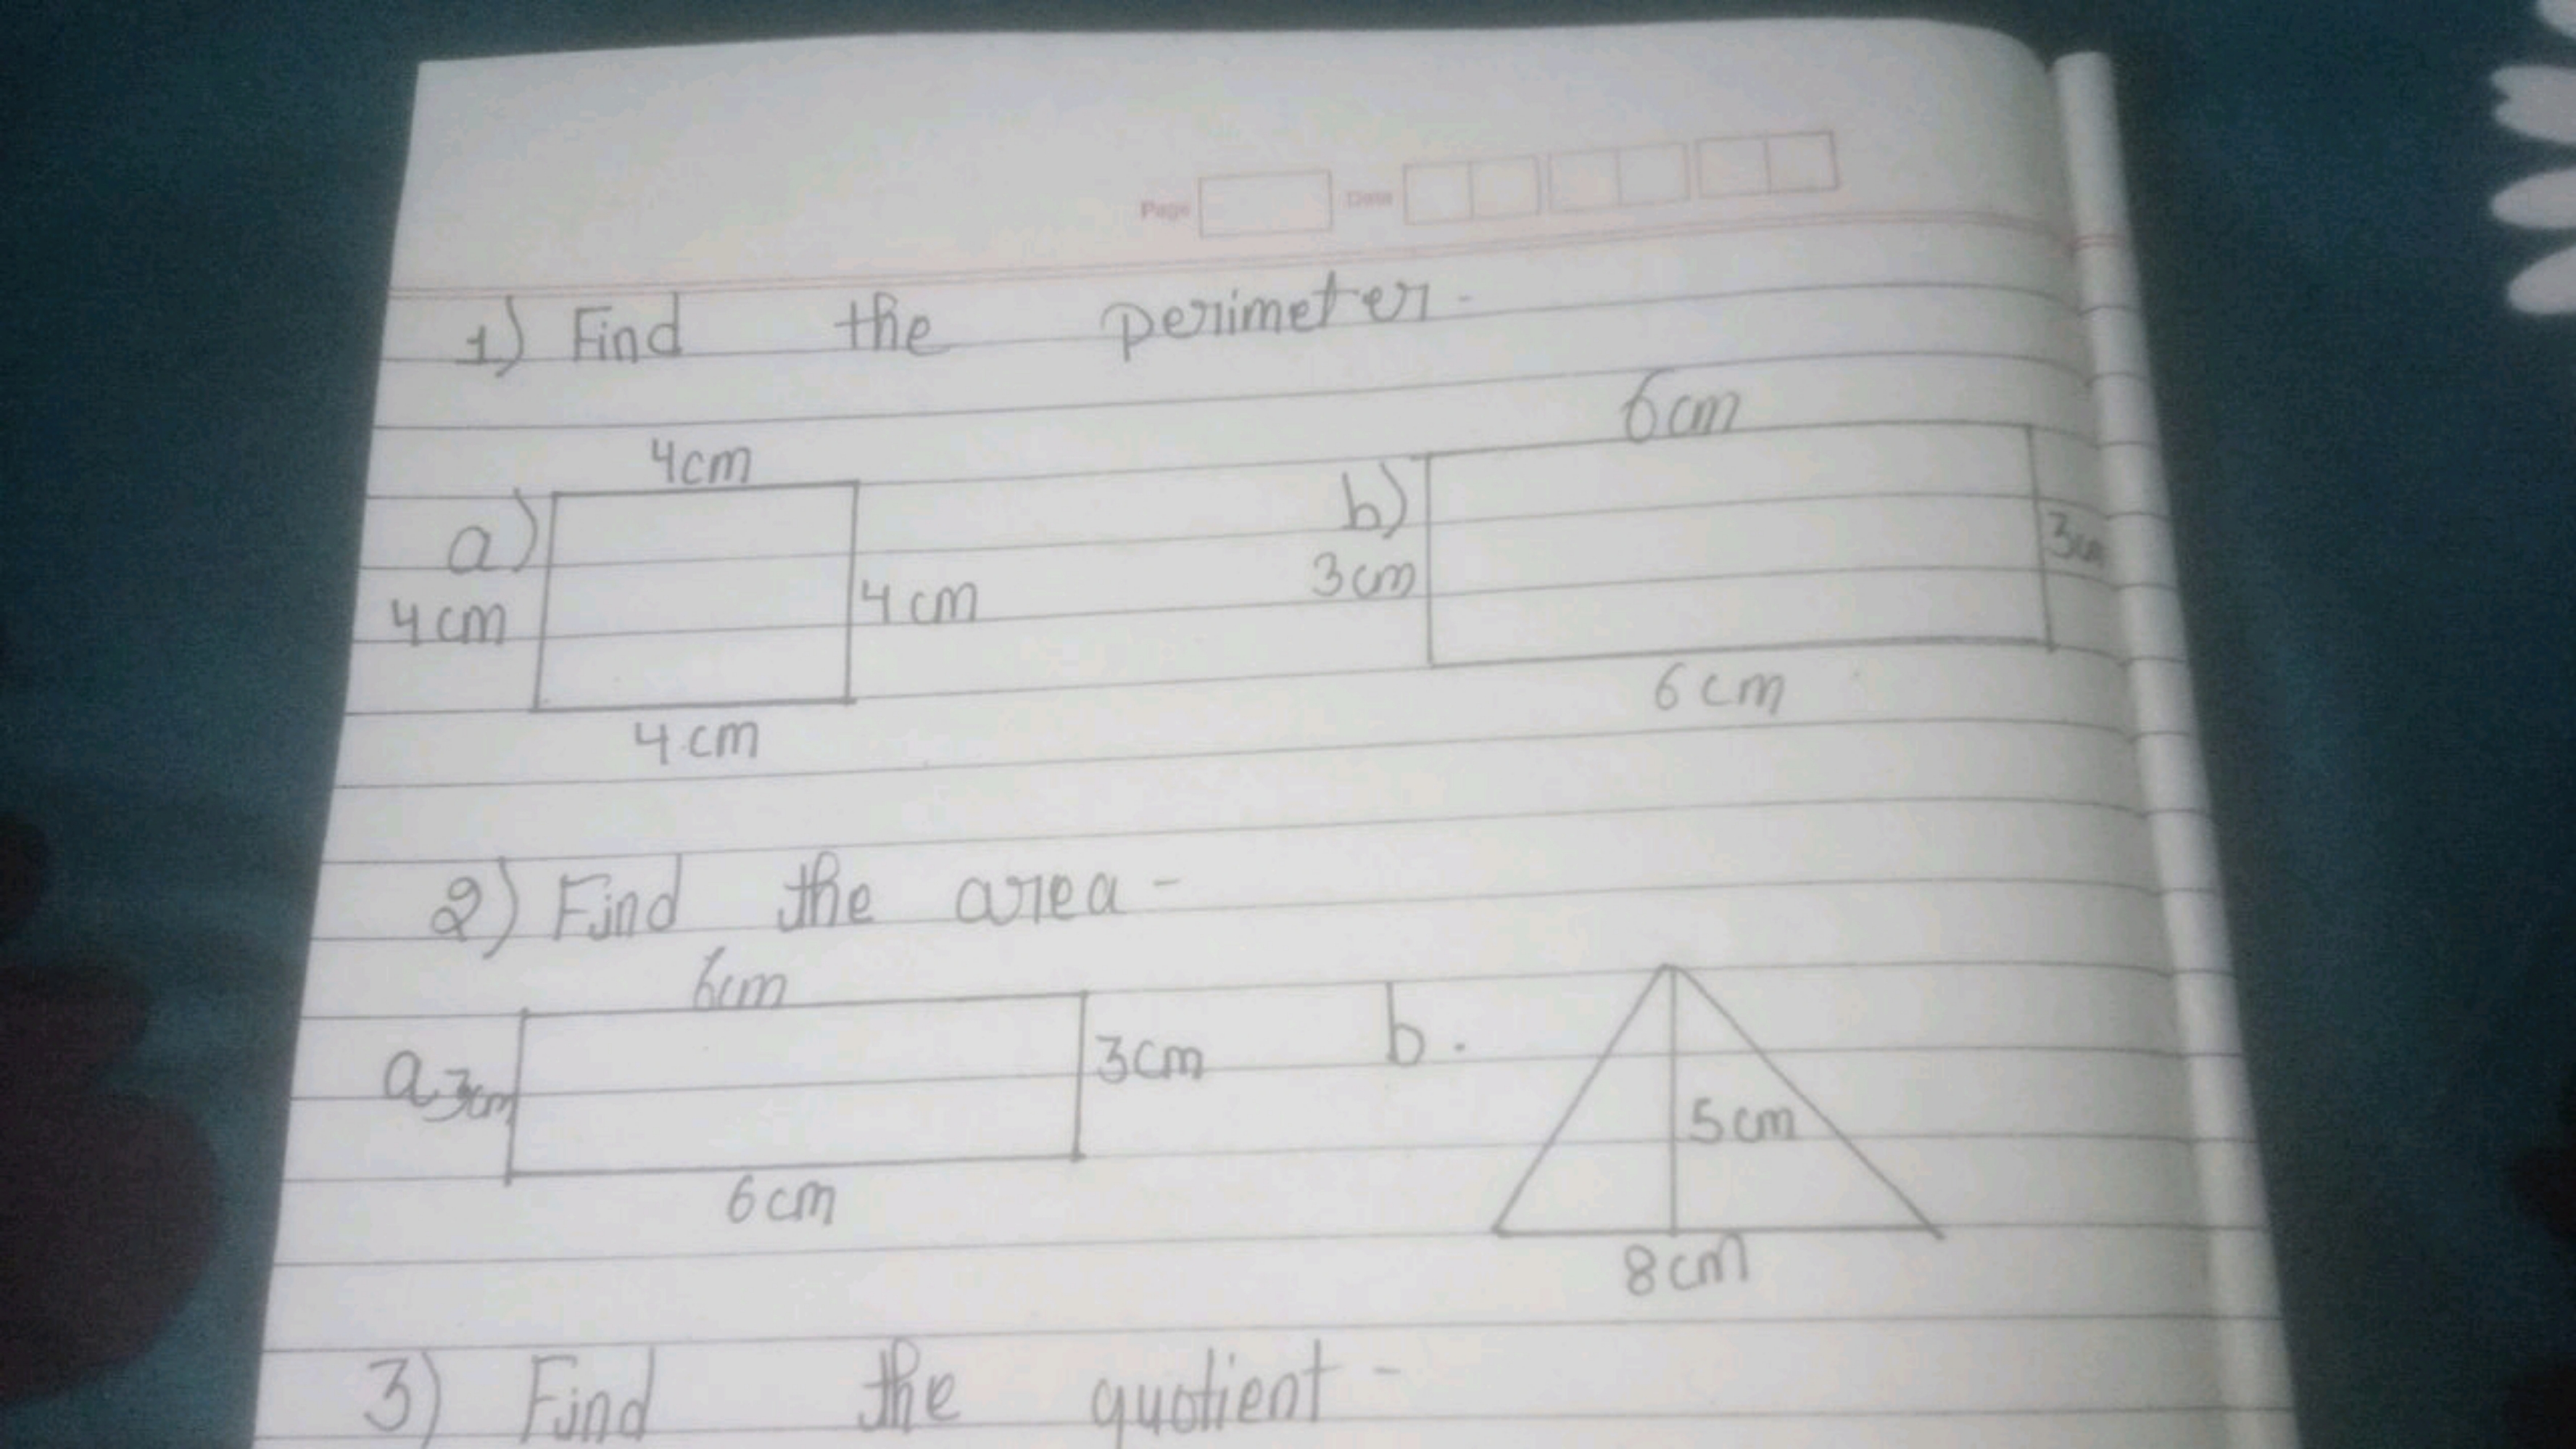 Page Date
1) Find the perimeter-
6cm
4cm
a) b)
4cm 4cm 3cm 3cm
4cm 6cm
2) Find the area-
6cm
a 3cm 3cm b.
5cm
6cm 8cm
3) Find the quotient-